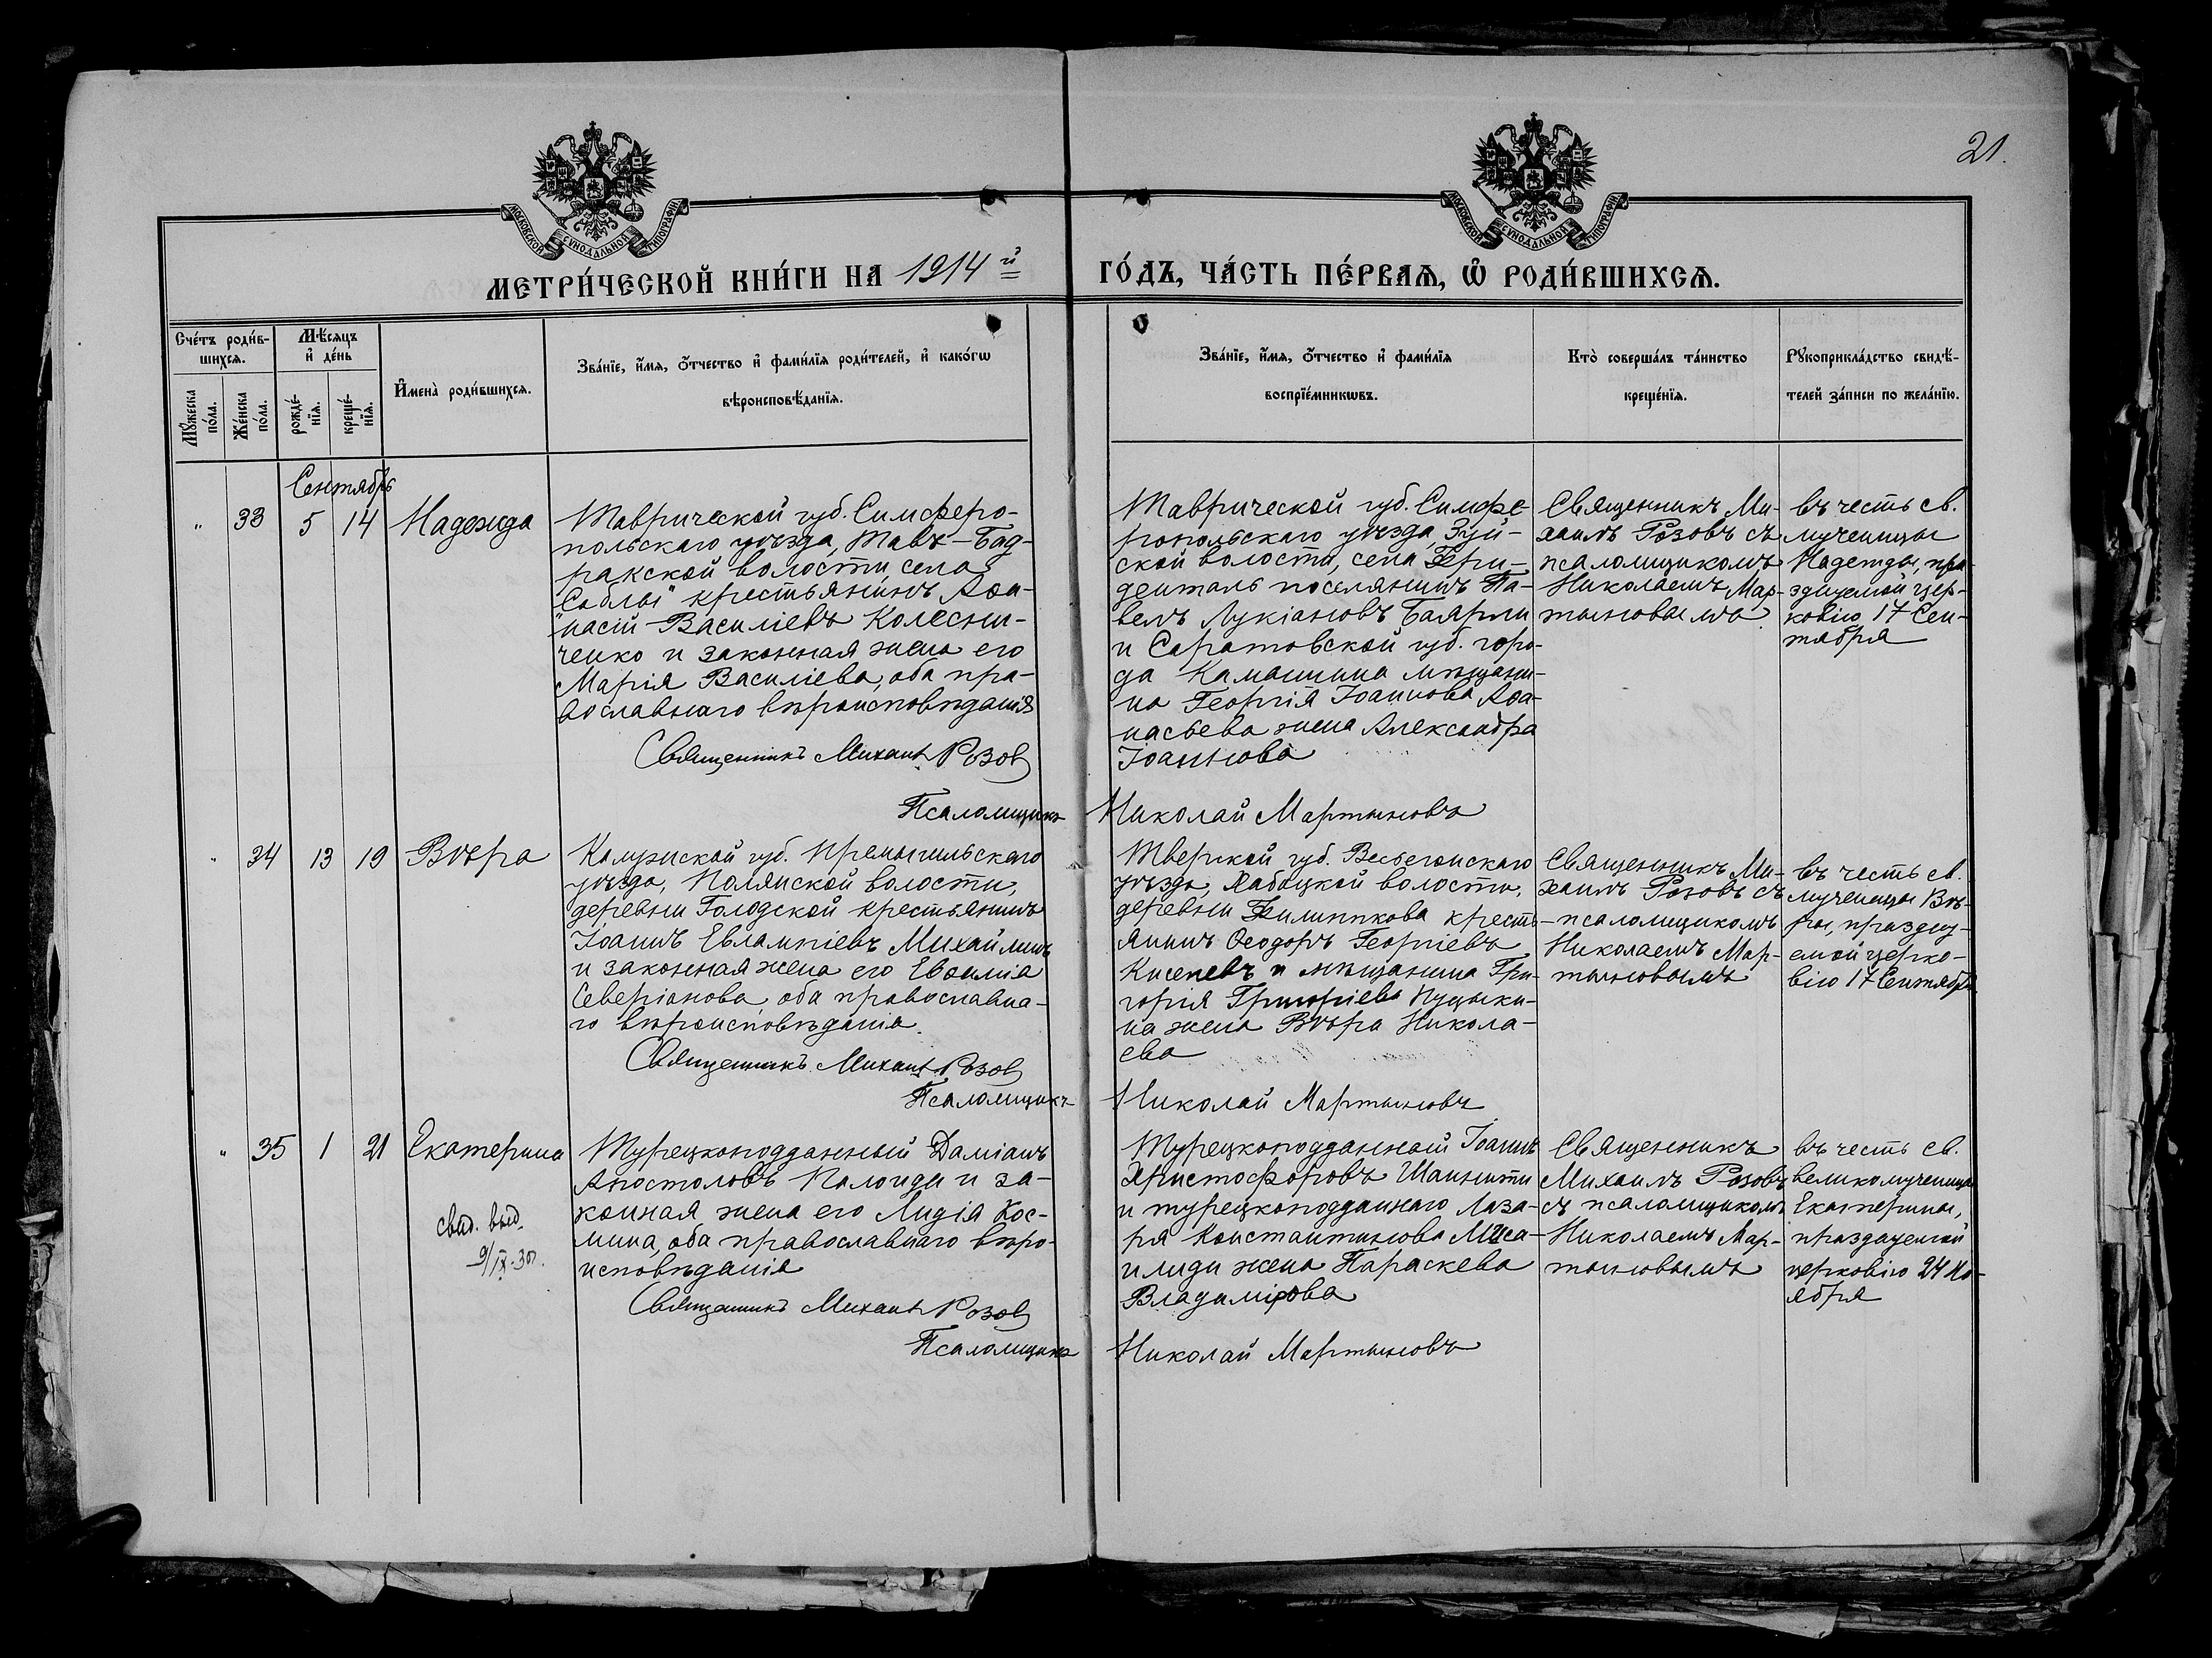 21.
МОСКОВСКОЙ СѴНОДАЛЬНОЙ ТИПОГРАФІИ
МОСКОВСКОЙ СѴНОДАЛЬНОЙ ТИПОГРАФІИ
МЕТРИ́ЧЕСКОЙ КНИ́ГИ НА 1914й ГО́ДЪ, ЧА́СТЬ ПЕ́РВАѦ, Ѡ҆ РОДИ́ВШИХСѦ.
Сче́тъ роди́в-
шихсѧ.
Мѣ́сѧцъ
и҆ де́нь
Мꙋ́жеска
по́ла.
Же́нска
по́ла.
рожде́-
нїѧ.
креще́-
нїѧ.
И҆мена̀ роди́вшихсѧ.
Зва́нїе, и҆́мѧ, ѻ҆́тчество и҆ фами́лїѧ роди́телей, и҆ како́гѡ
вѣроисповѣ́данїѧ.
Зва́нїе, и҆́мѧ, ѻ҆́тчество и҆ фами́лїѧ
воспрїе́мникѡвъ.
Кто̀ соверша́лъ та́инство
креще́нїѧ.
Рꙋкоприкла́дство свидѣ́-
телей за́писи по жела́нїю.
Сентябрь
" 33 5 14 Надежда
Таврической губ. Симферо-
польскаго уѣзда, Тавъ-Бад-
ракской волости, села
"Саблы" крестьянинъ Аѳа-
насій Василіевъ Колесни-
ченко и законная жена его
Марія Василіева, оба пра-
вославнаго вѣроисповѣданія
Священникъ Михаилъ Розов
Псаломщикъ Николай Мартыновъ
Таврической губ. Симфе-
ропольскаго уѣзда, Зуй-
ской волости, села Фри-
денталь поселянинъ Па-
велъ Лукіановъ Баярли
и Саратовской губ. горо-
да Камышина мѣщани-
на Георгія Іоаннова Аѳа-
насьева жена Александра
Іоаннова
Священникъ Ми-
хаилъ Розовъ съ
псаломщикомъ
Николаемъ Мар-
тыновымъ
въ честь св.
мученицы
Надежды, пра-
зднуемой цер-
ковію 17 Сен-
тября
" 34 13 19 Вѣра
Калужской губ. Премышльскаго
уѣзда, Полянской волости,
деревни Голодской крестьянинъ
Іоаннъ Евлампіевъ Михайлинъ
и законная жена его Евѳимія
Северіанова, оба православна-
го вѣроисповѣданія.
Священникъ Михаилъ Розов
Псаломщикъ Николай Мартыновъ
Тверской губ. Весьегонскаго
уѣзда, Лабоцкой волости,
деревни Филиппкова кресть-
янинъ Ѳеодоръ Георгіевъ
Киселевъ и мѣщанина Гри-
горія Григоріева Пузыки-
на жена Вѣра Никола-
ева
Священникъ Ми-
хаилъ Розовъ съ
псаломщикомъ
Николаемъ Мар-
тыновымъ
въ честь св.
мученицы Вѣ-
ры, праздну-
емой церко-
вію 17 Сентября
" 35 1 21 Екатерина
свид. выд.
9/IX-30г.
Турецкоподданный Даміанъ
Апостоловъ Палоиди и за-
конная жена его Лидія Кос-
мина, оба православнаго вѣро-
исповѣданія
Священникъ Михаилъ Розов
Псаломщикъ Николай Мартыновъ
Турецкоподданный Іоаннъ
Христофоровъ Шаинити
и турецкоподданнаго Лаза-
ря Константинова Миса-
илиди жена Параскева
Владимірова
Священникъ
Михаилъ Розовъ
съ псаломщикомъ
Николаемъ Мар-
тыновымъ
въ честь св.
великомученицы
Екатерины,
празднуемой
церковію 24 Но-
ября